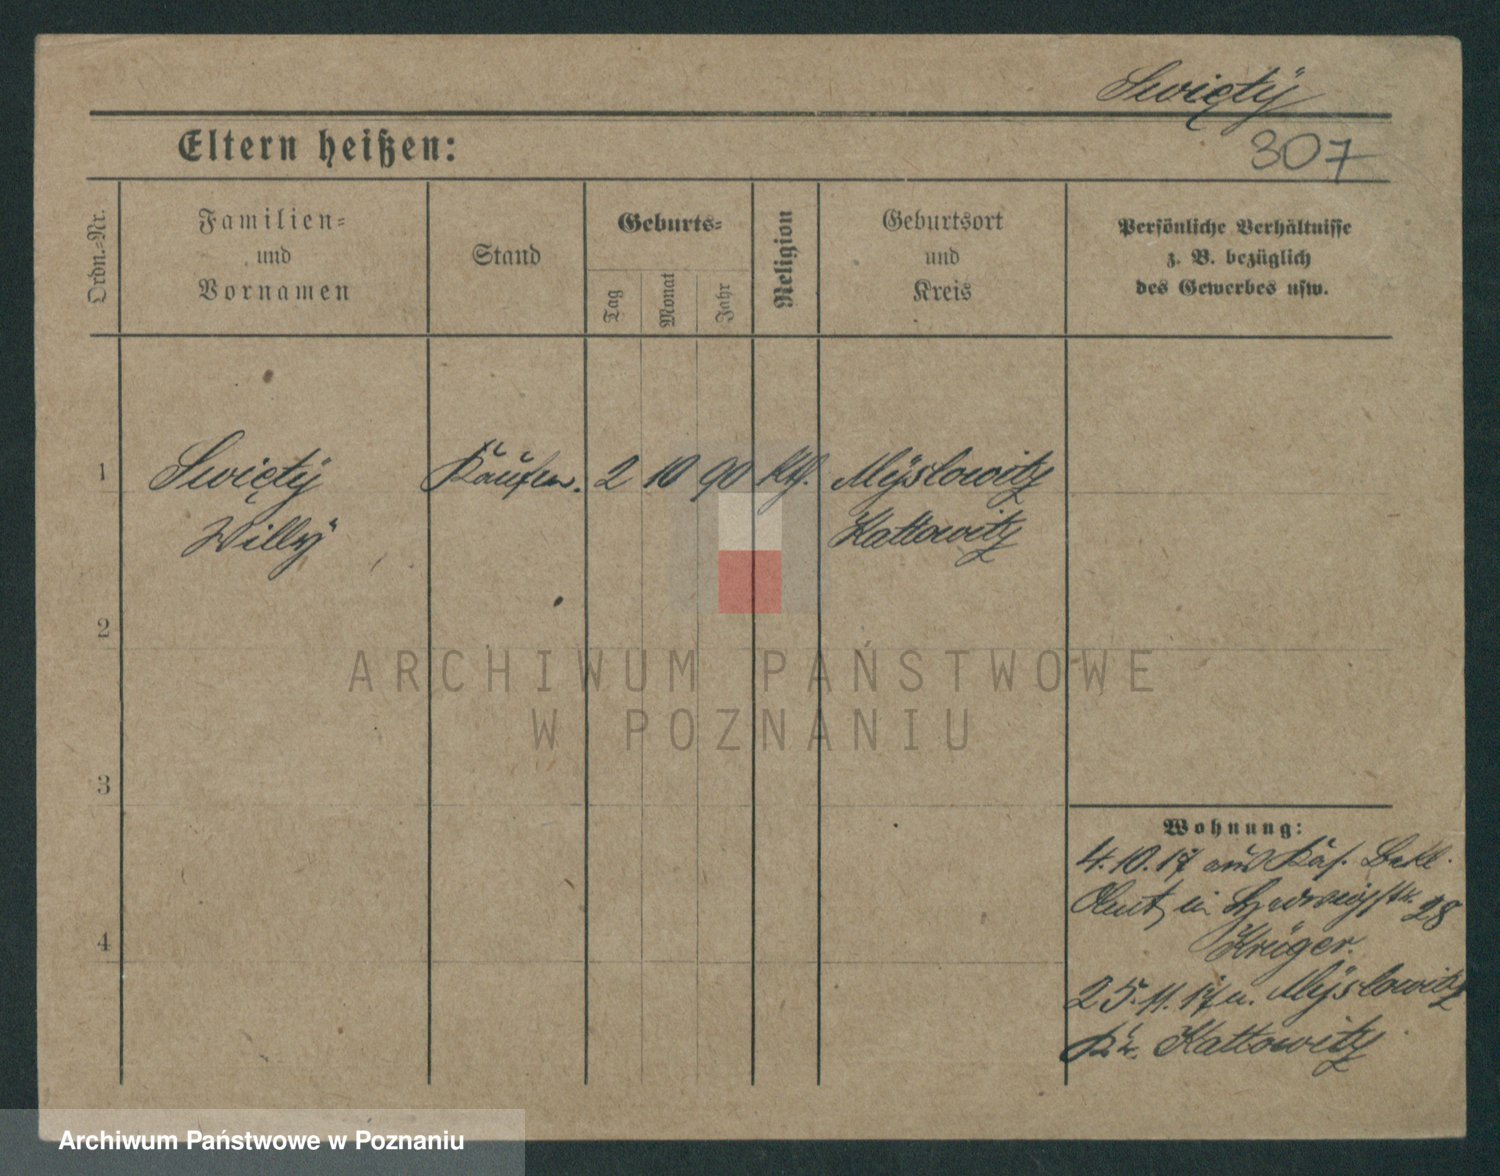 Swięty
307
Eltern heißen:
Ordn.=Nr.
Familien=
und
Vornamen
Stand
Geburts=
Tag
Monat
Jahr
Religion
Geburtsort
und
Kreis
Persönliche Verhältnisse
z. B. bezüglich
des Gewerbes usw.
1 Swięty Kaufm. 2 10 90 kth. Myslowitz
Willy Kattowitz
2
ARCHIWUM PAŃSTWOWE
W POZNANIU
3
Wohnung:
4.10.17 aus Bekl.
Amt, in 28
4 Krüger.
25.11.17 n. Myslowitz
Kr. Kattowitz
Archiwum Państwowe w Poznaniu